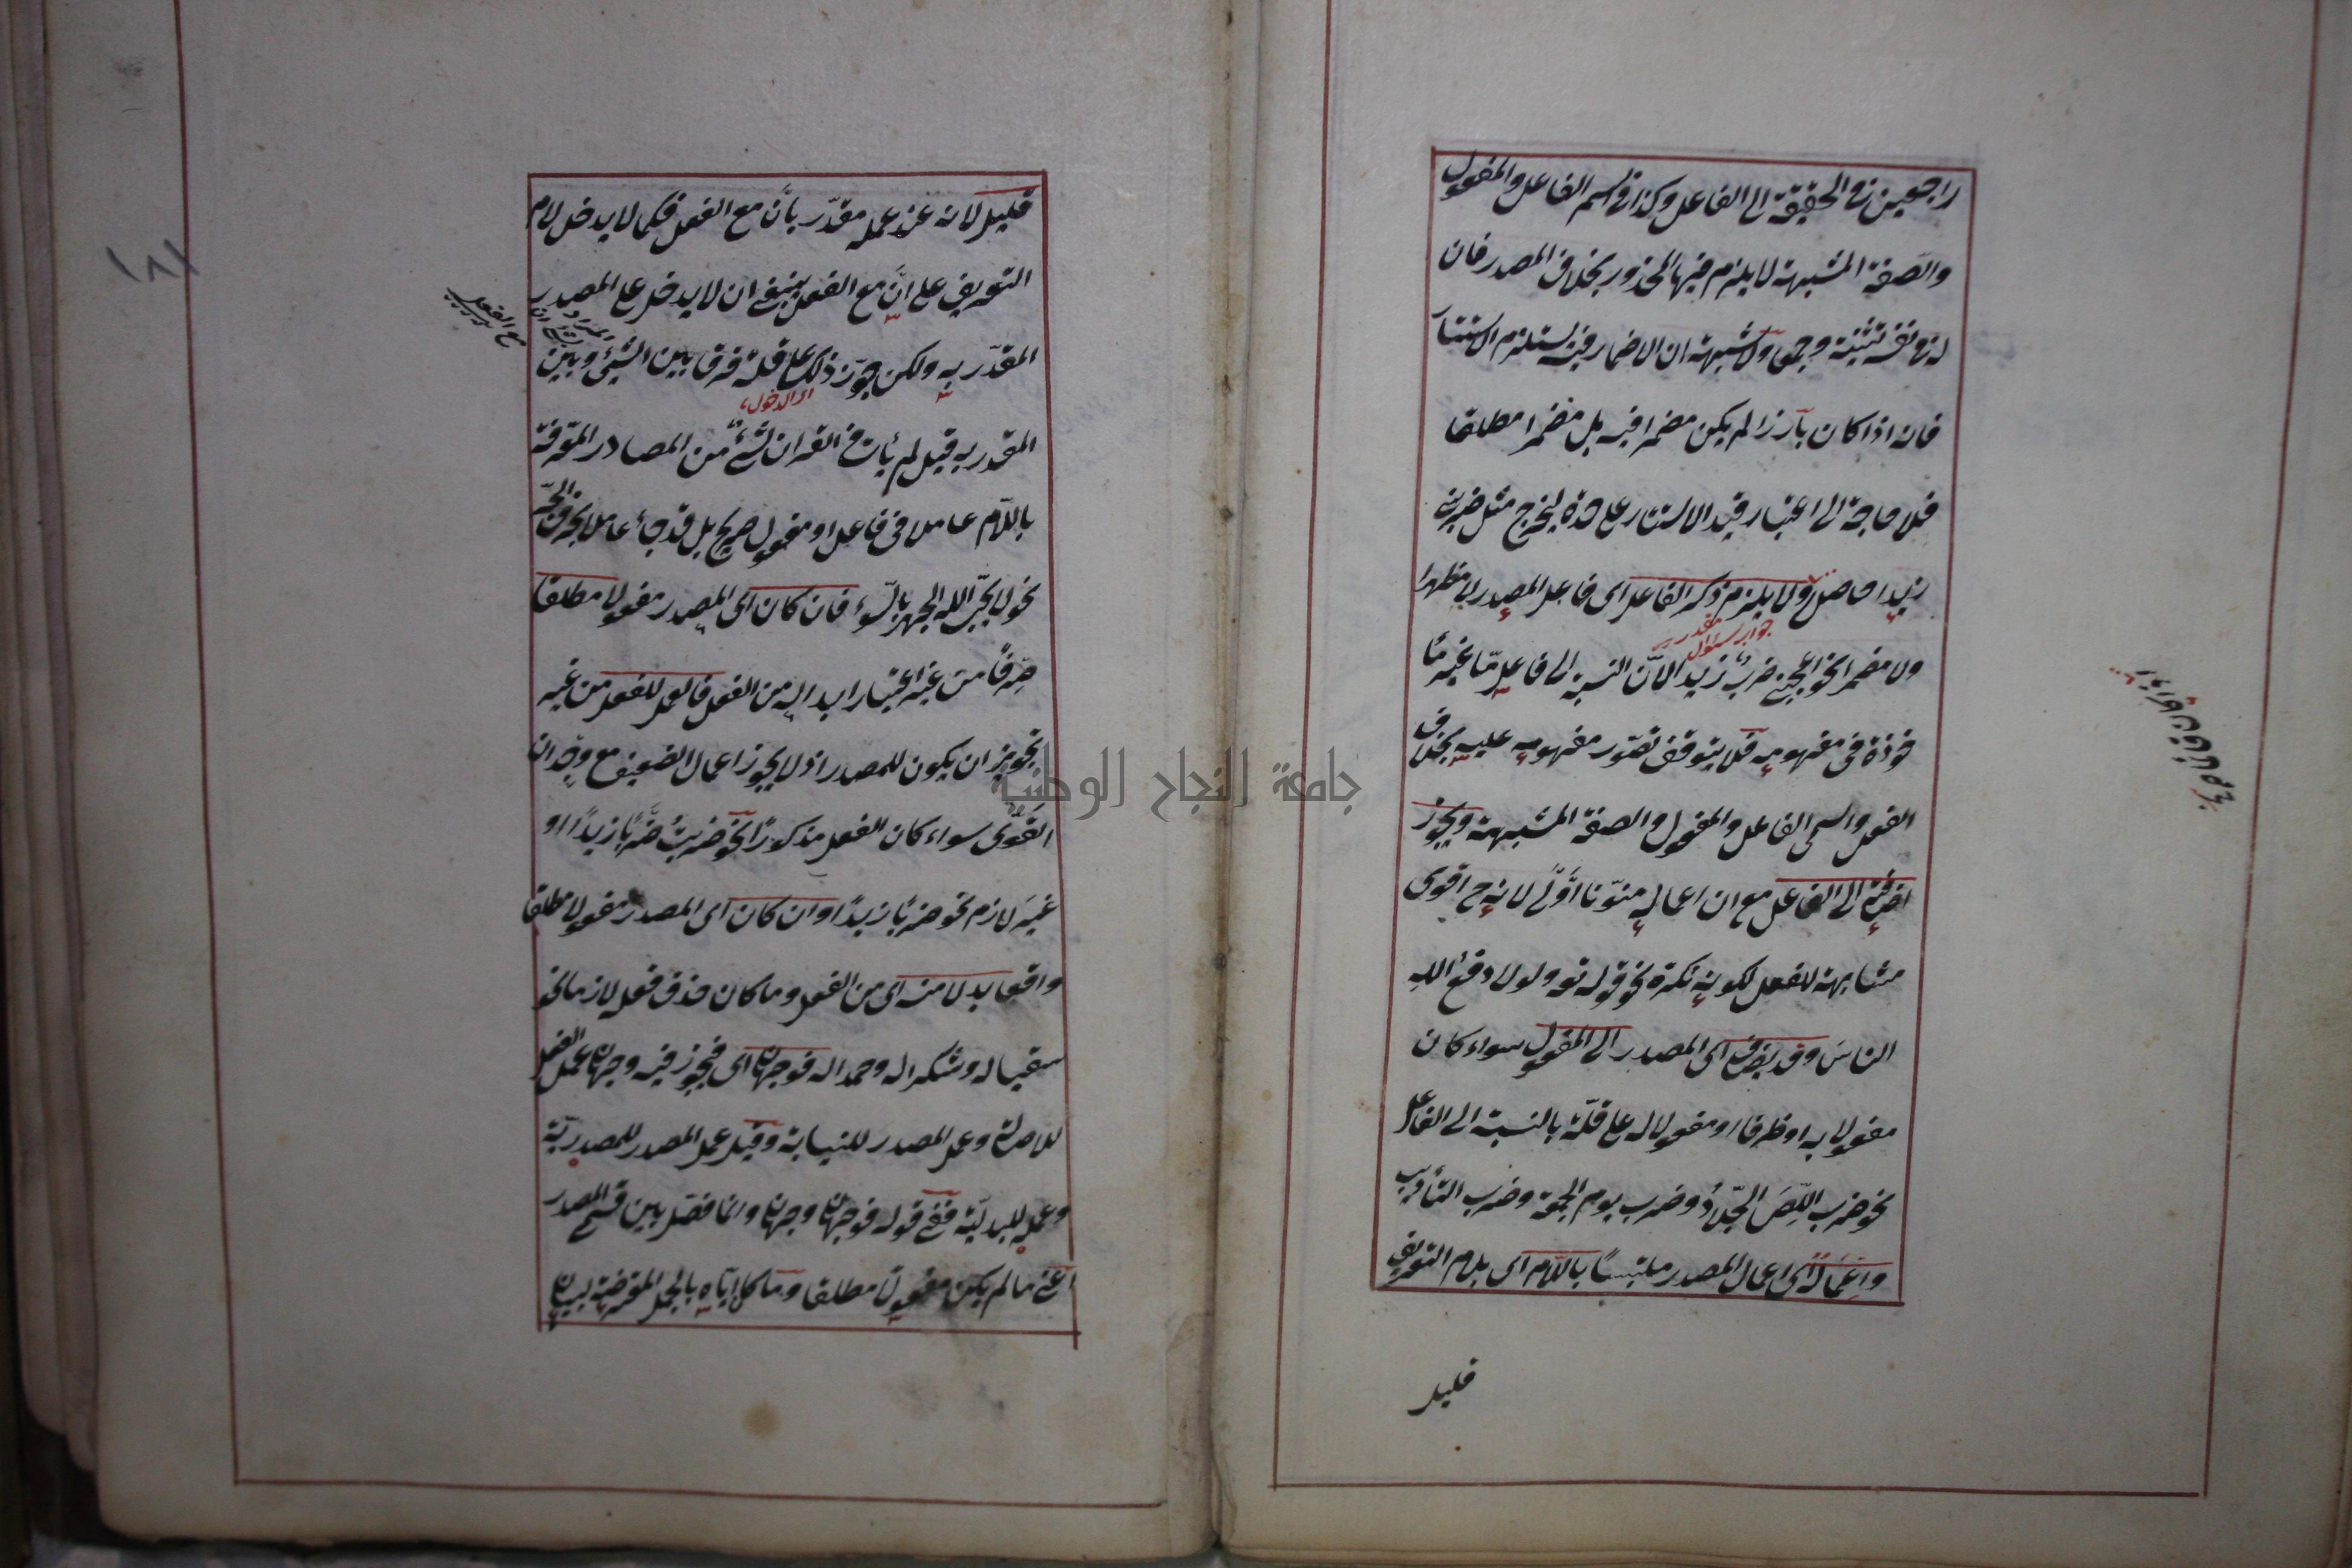 راجعين في الحقيقة الى الفاعل وكذا في اسم الفاعل والمفعول
والصفة المشبهة لا يلزم فيها المحذور بخلاف المصدر فان
له في نفسه تثنية وجمعا ولا شبهة ان الاضمار فيه يستلزم الاستتار
فانه اذا كان بارزا لم يكن مضمرا فيه بل مضمرا مطلقا
فلا حاجة الى اعتبار قيد الاستتار على حدة ليخرج مثل ضربي
زيدا حاصل ولا يلزم ذكر الفاعل اى فاعل المصدر لا مظهرا
جواب سئوال مقدر
ولا مضمرا نحو اعجبني ضربٌ زيدا لانّ النسبة الى فاعل مّا غير مأ
خوذة في مفهومه فلا يتوقف تصوّر مفهومه عليه بخلاف
الفعل واسمى الفاعل والمفعول والصفة المشبهة ويجوز
اضافته الى الفاعل مع ان اعماله منوّنا اولى لانه ح اقوى
مشابهة للفعل لكونه نكرة نحو قوله تع ولولا دفع الله
الناس وقد يضاف اى المصدر الى المفعول سواء كان
مفعولا به او ظرفا او مفعولا له على قلّة بالنسبة الى الفاعل
نحو ضرب اللّصّ الجلّادُ وضرب يوم الجمعة وضرب التأديب
واعماله اى اعمال المصدر ملتبسًا باللّام اى بلام التعريف
قليل
قليل لانه عند عمله مقدّر بأن مع الفعل فكما لا يدخل لام
التعريف على انَّ مع الفعل ينبغي ان لا يدخل على المصدر
مع الفعل
المقدّر به ولكن جوّز ذلك على قلة فرقا بين الشيئ وبين
اى الدخول
المقدر به قيل لم يأت في القران شئ من المصادر المعرفة
باللّام عاملا في فاعل او مفعول صريح بل قد جاء عاملا بحرف الجرّ
نحو لا يحبّ الله الجهر بالسّوء فان كان اى المصدر مفعولا مطلقا
صِرفًا من غير اعتبار ابداله من الفعل فالعمل للفعل من غير
تجويز ان يكون للمصدر اذ لا يجوز اعمال الضعيف مع وجدان
القوىّ سواء كان الفعل مذكورًا نحو ضربتُ ضربًا زيدًا او
غيرَ لازم نحو ضربًا زيدًا وان كان اى المصدر مفعولا مطلقا
واقعا بدلا منه اى من الفعل وما كان حذف فعله لازما نحو
سقيا له وشكرا له وحمدا له فوجهان اى فيجوز فيه وجهان عمل الفعل
للاصالة وعمل المصدر للنيابة وقيل عمل المصدر للمصدريّة
وعمله للبدليّة ففي قوله فوجهان وجهان وانما فصّل بين قسمي المصدر
اعنى ما لم يكن مفعولا مطلقا وما كان ايّاه بالجمل المعترضة لبيان
جامعة النجاح الوطنية